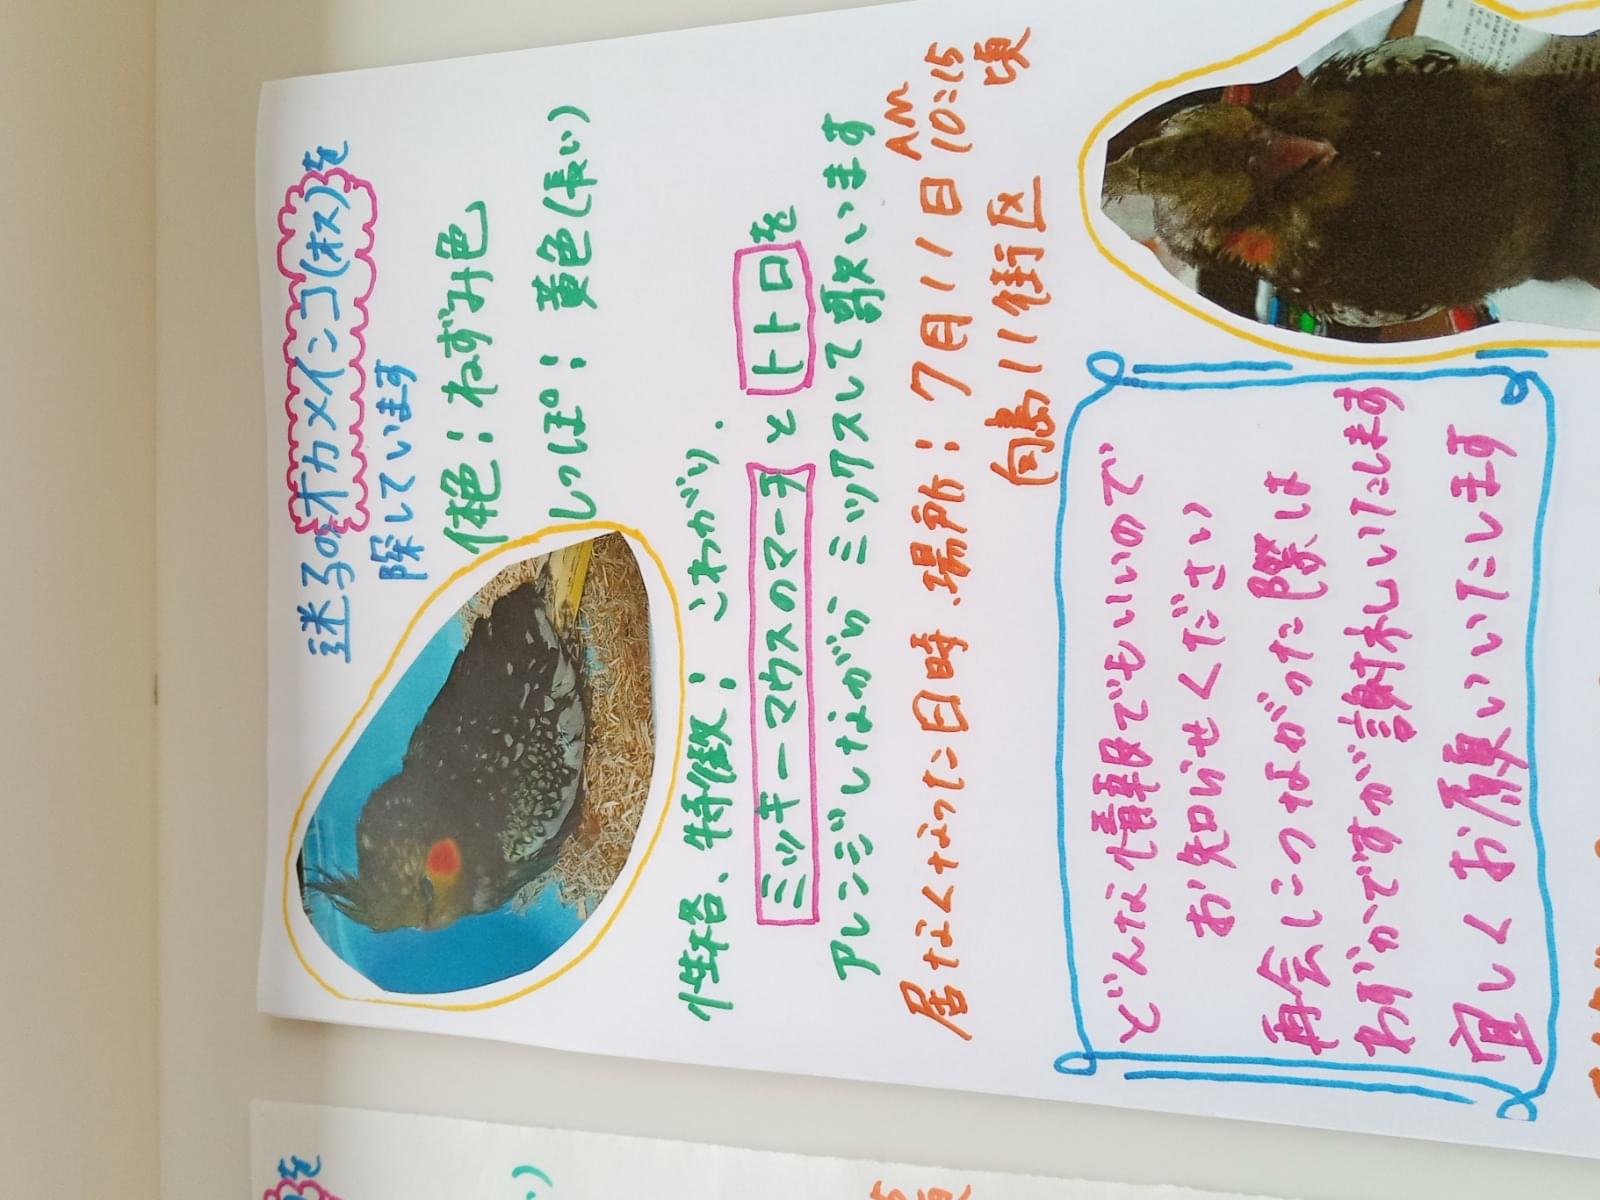 迷子のオカメインコ(オス)を
探しています
体色：ねずみ色
しっぽ：黄色(長い)
性格、特徴：こわがり.
ミッキーマウスのマーチとトトロを
アレンジしながらミックスして歌います
居なくなった日時、場所：7月11日AM10:15頃
向島11街区
どんな情報でもいいので
お知らせください
再会につながった際は
わずかですが謝礼いたします
宜しくお願いいたします
を
い)
15
頃